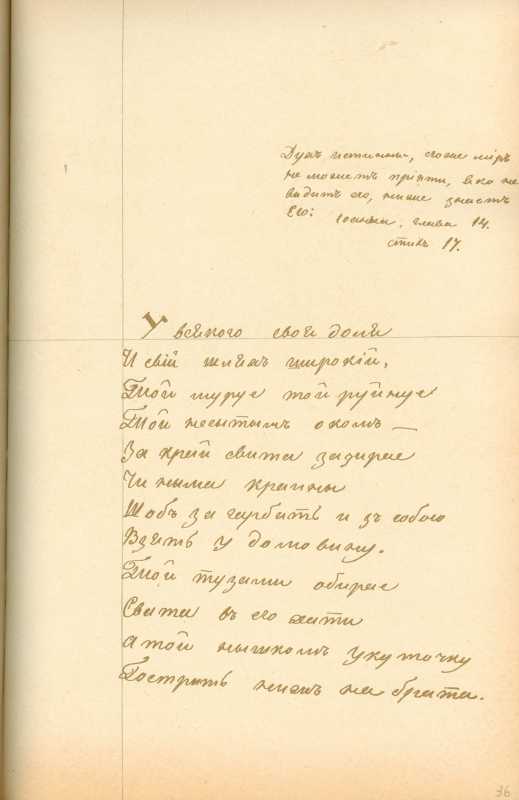 Духъ истины, его же міръ
не можетъ пріяти, яко не
видитъ его, ниже знаетъ
Его:
Іоанна, глава 14.
стихъ 17.
У всякого своя доля
И свій шляхъ широкій,
Той муруе той руйнуе
Той неситымъ окомъ —
За край свита зазирае
Чи ныма краины
Щобъ загарбать и зъ собою
Взять у домовину.
Той тузами обирае
Свата въ его хати
А той нышкомъ у куточку
Гострыть нижъ на брата.
36